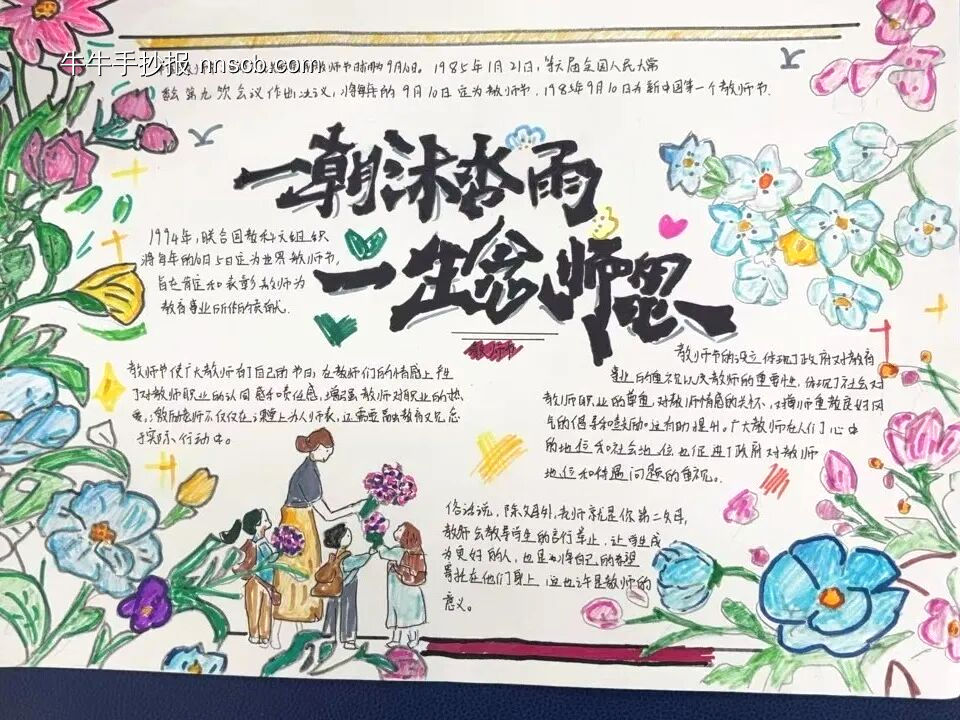 牛牛手抄报.nnscb.com
教师节时间为9月10日。1985年1月21日，第六届全国人民大常
委会第九次会议作出决议，将每年的9月10日定为教师节，1985年9月10日为新中国第一个教师节.
一潮沐杏雨
一生念师恩
教师节
1994年，联合国教科文组织
将每年的10月5日定为世界教师节，
旨在肯定和表彰教师为
教育事业所作的贡献.
教师节使广大教师有了自己的节日，在教师们的情感上产生
了对教师职业的认同感和责任感，增强教师对职业的热
爱，激励老师不仅仅在课堂上为人师表，还需要融教育义
于实际行动中。
教师节的设立体现了政府对教育
事业的重视以及教师的重要性，体现了社会对
教师职业的尊重，对教师情感的关怀、对尊师重教良好风
气的倡导和鼓励，还有助提升广大教师在人们心中
的地位和社会地位也促进了政府对教师
地位和待遇问题的重视。
俗话说，除父母外，老师就是你第二父母，
教师会教导学生的言行举止，让学生成
为更好的人，也是为将自己的希望
寄托在他们身上，这也许是教师的
意义。